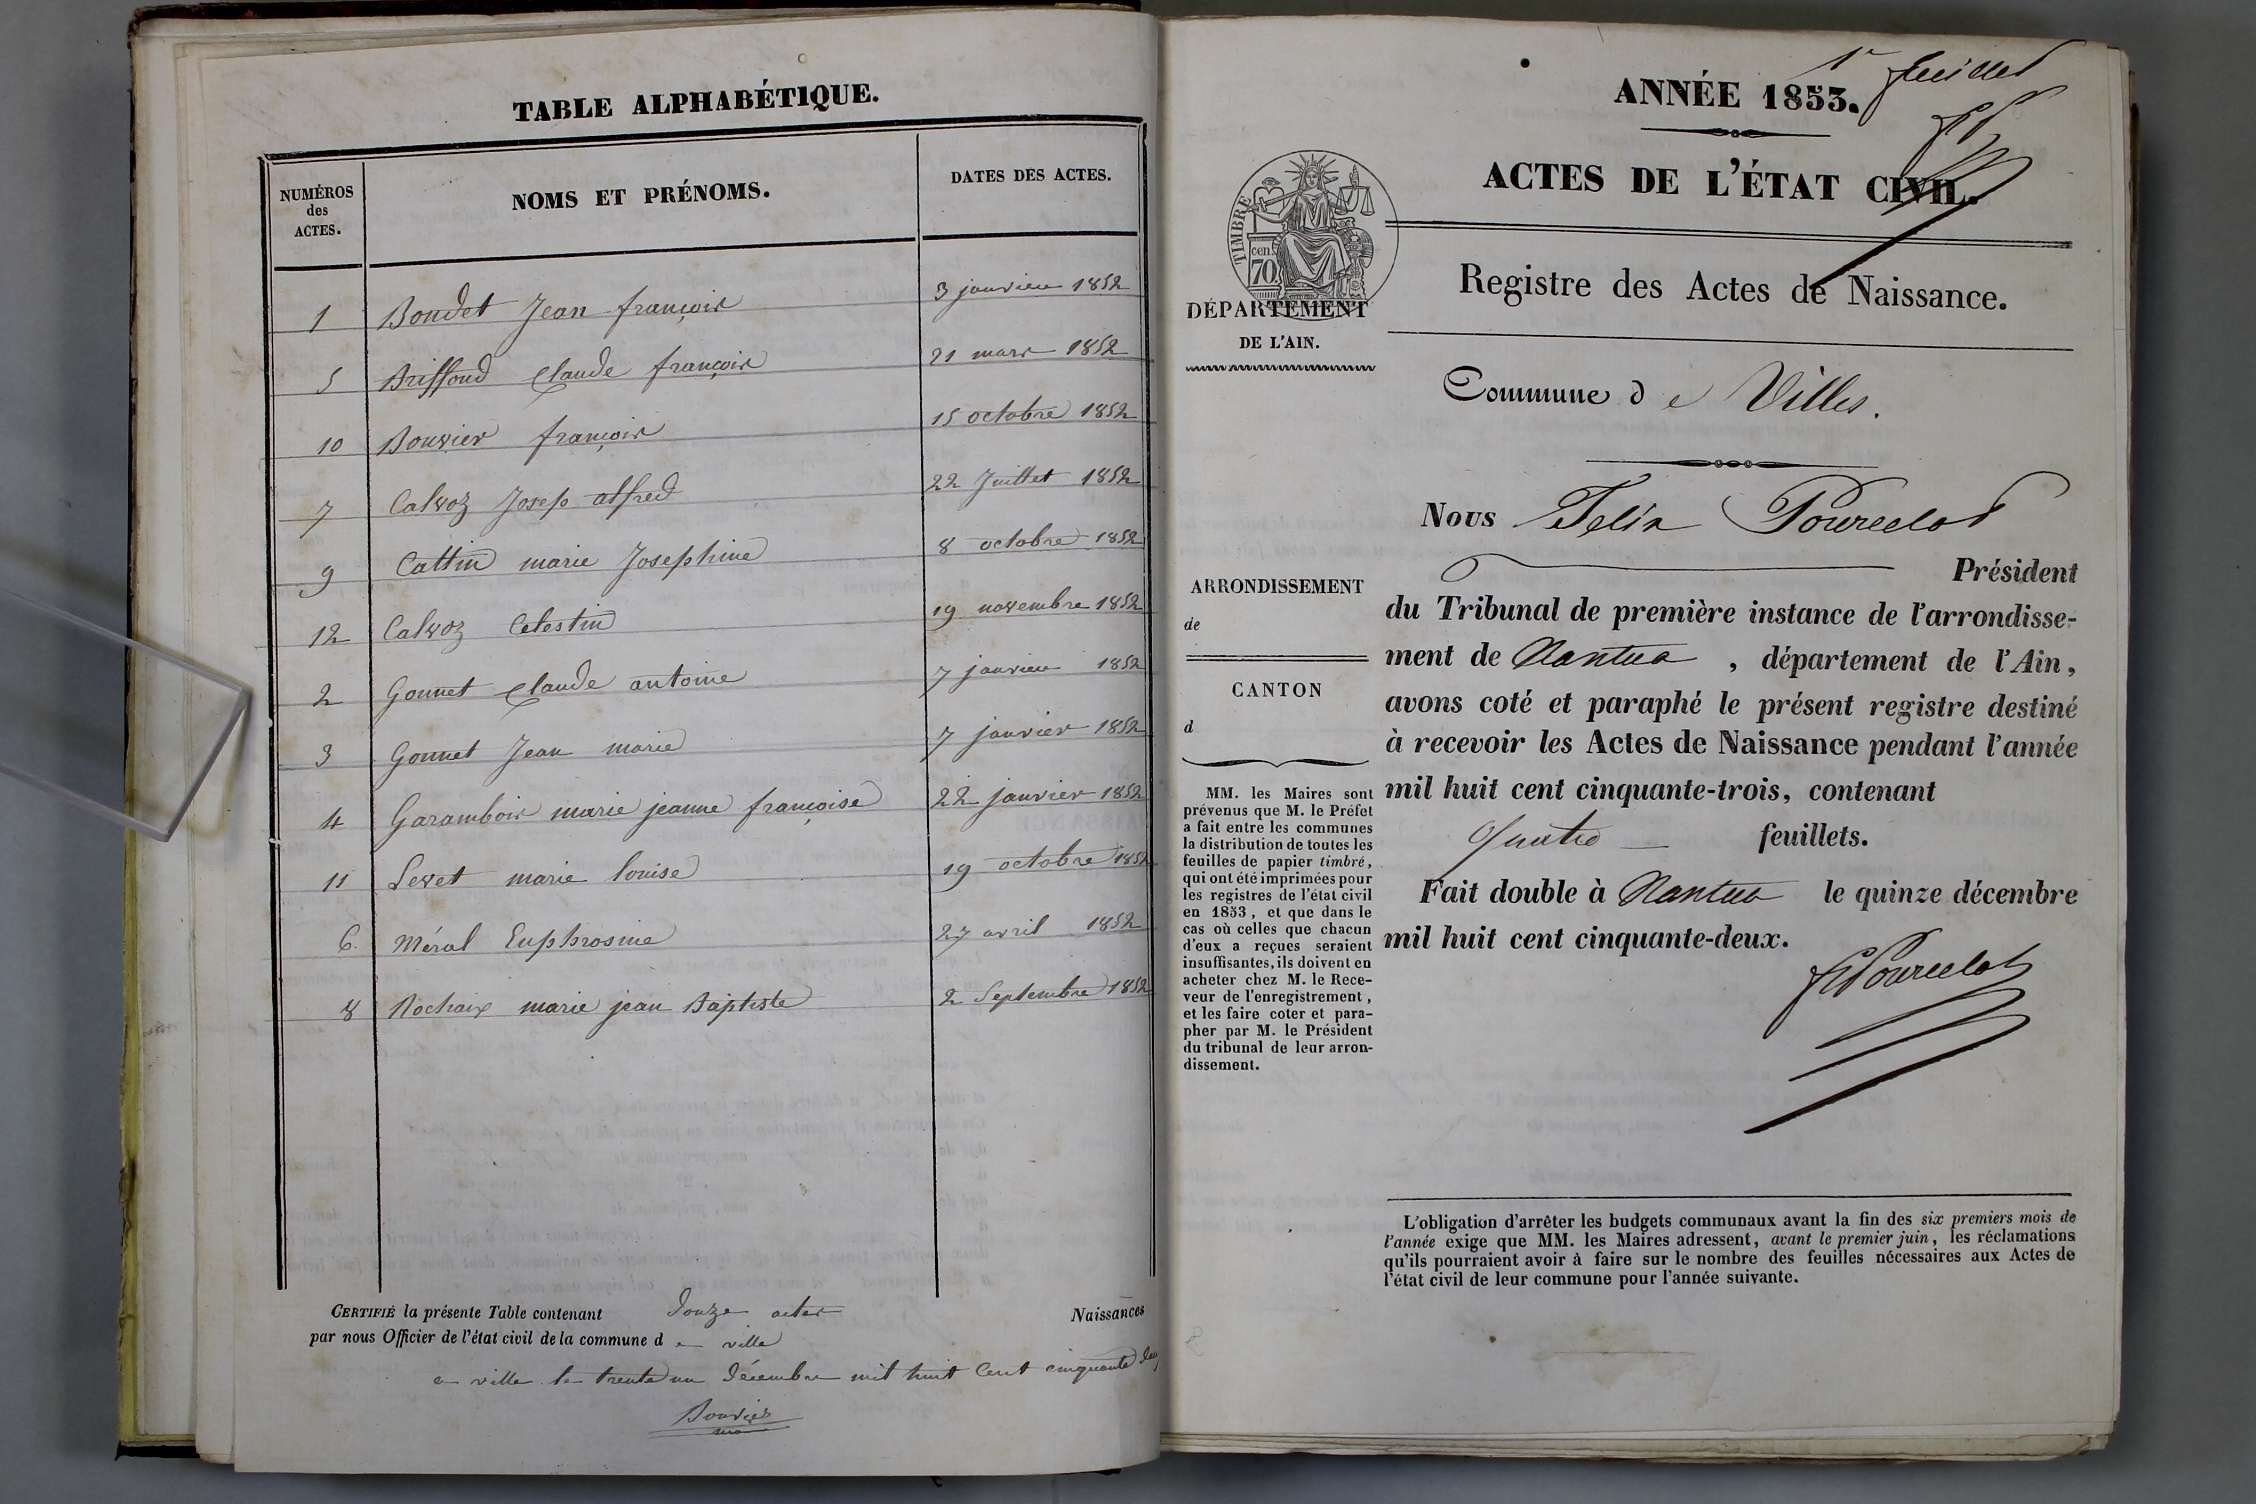 TABLE ALPHABÉTIQUE.
NUMÉROS des ACTES.
NOMS ET PRÉNOMS.
DATES DES ACTES.
1 Boudet Jean françois 3 janvier 1852
5 Briffond Claude françois 21 mars 1852
10 Bouvier françois 15 octobre 1852
7 Calvoz Josep alfred 22 Juillet 1852
9 Cattin marie Josephine 8 octobre 1852
12 Calvoz Celestin 19 novembre 1852
2 Gonnet Claude antoine 7 janvier 1852
3 Gonnet Jean marie 7 janvier 1852
4 Garambois marie jeanne françoise 22 janvier 1852
11 Levet marie louise 19 octobre 1852
6. Méral Euphrosine 27 avril 1852
8 Rochaix marie jean Baptiste 2 Septembre 1852
CERTIFIÉ la présente Table contenant douze actes Naissances
par nous Officier de l'état civil de la commune d e ville
a ville le trente un décembre mil huit Cent cinquante deux
Bouvier
1er feuillet
ANNÉE 1853.
ACTES DE L'ÉTAT CIVIL.
TIMBRE
70 cen.
Registre des Actes de Naissance.
DÉPARTEMENT
DE L'AIN.
Commune d e Villes.
Nous Felix Pourcelot
Président
du Tribunal de première instance de l'arrondisse-
ment de Nantua, département de l'Ain,
avons coté et paraphé le présent registre destiné
à recevoir les Actes de Naissance pendant l'année
mil huit cent cinquante-trois, contenant
Quatre feuillets.
Fait double à Nantua le quinze décembre
mil huit cent cinquante-deux.
Pourcelot
ARRONDISSEMENT
de
CANTON
d
MM. les Maires sont
prévenus que M. le Préfet
a fait entre les communes
la distribution de toutes les
feuilles de papier timbré,
qui ont été imprimées pour
les registres de l'état civil
en 1853, et que dans le
cas où celles que chacun
d'eux a reçues seraient
insuffisantes, ils doivent en
acheter chez M. le Rece-
veur de l'enregistrement,
et les faire coter et para-
pher par M. le Président
du tribunal de leur arron-
dissement.
L'obligation d'arrêter les budgets communaux avant la fin des six premiers mois de
l'année exige que MM. les Maires adressent, avant le premier juin, les réclamations
qu'ils pourraient avoir à faire sur le nombre des feuilles nécessaires aux Actes de
l'état civil de leur commune pour l'année suivante.